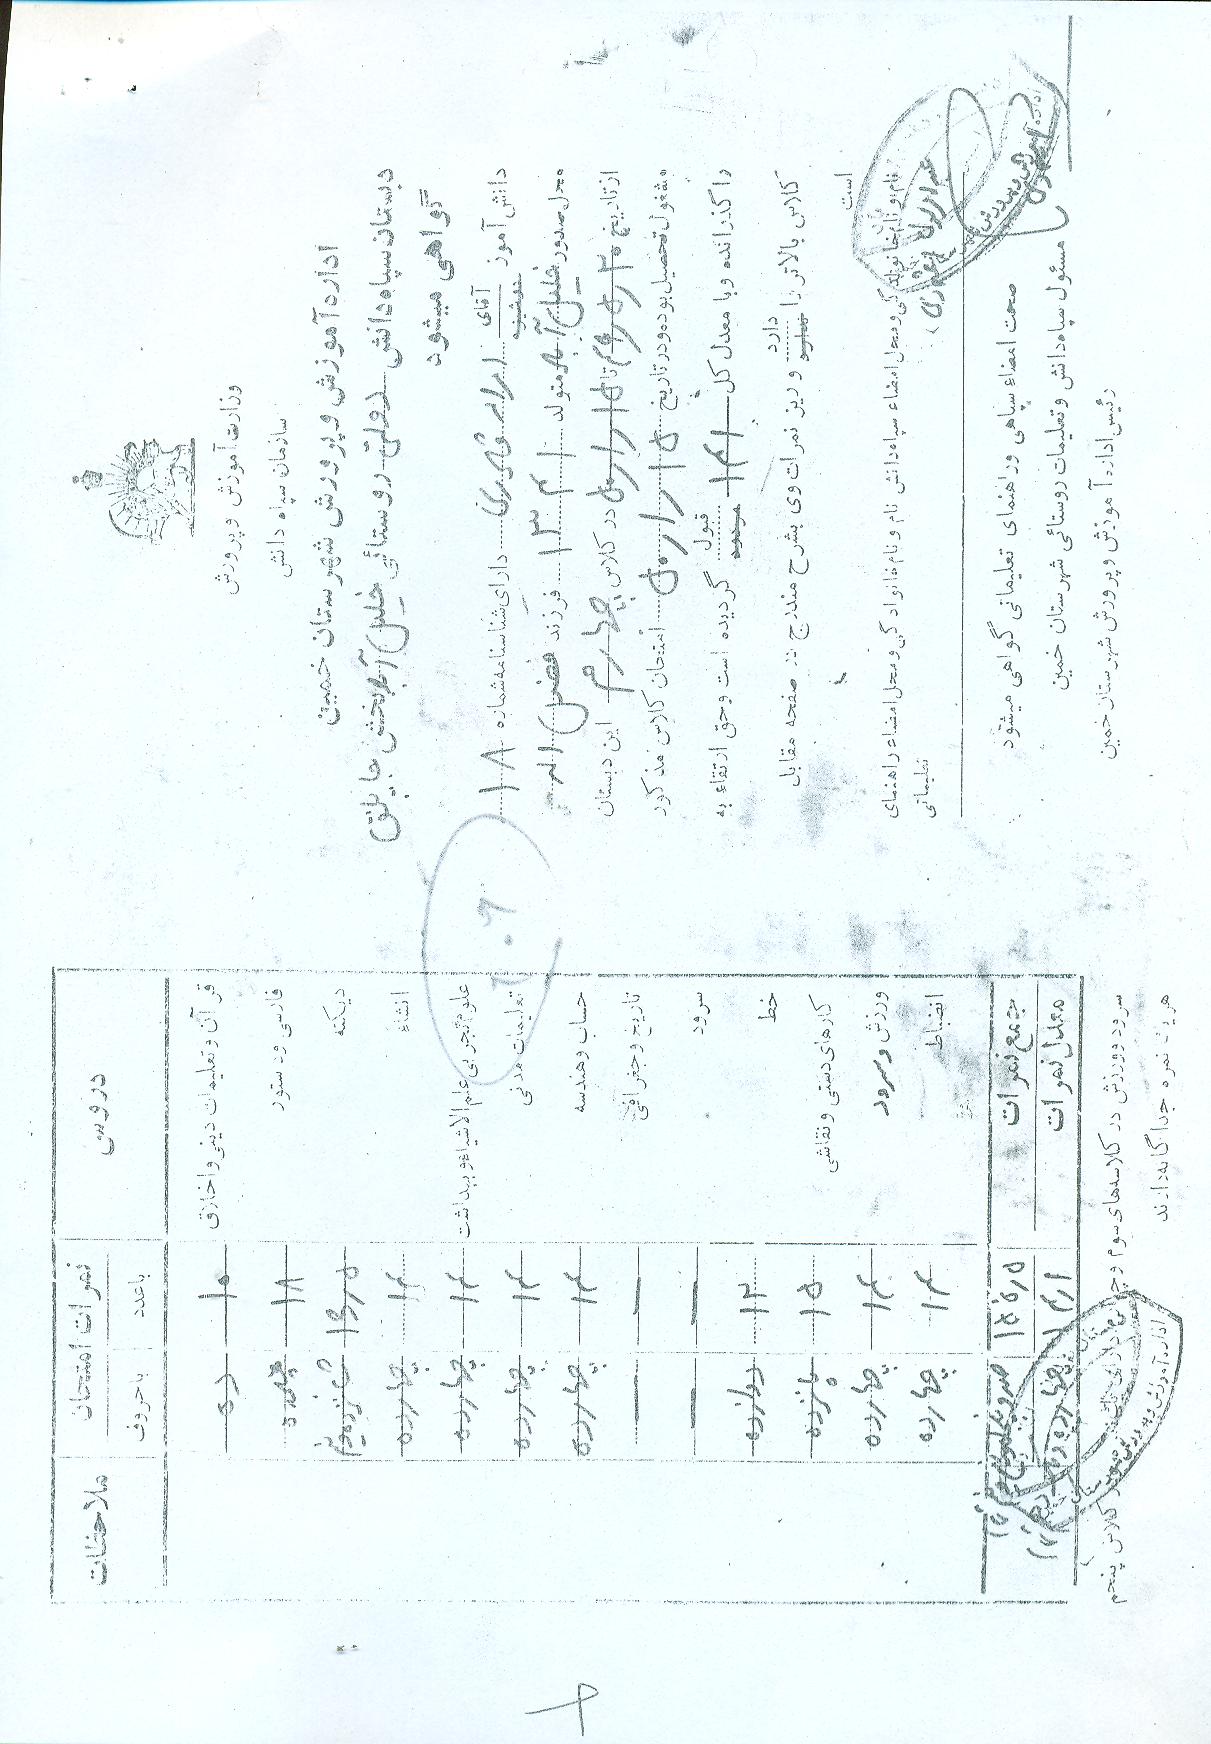 وزارت آموزش و پرورش
سازمان سپاه دانش
اداره آموزش و پرورش شهرستان خمین
دبستان سپاه دانش دولتی روستائی خلیل آباد بخش جاپلق
گواهی میشود
دانش آموز آقای دوشیزه دارای شناسنامه شماره ۱۸
محل صدور خلیل آباد متولد ۱۳۴۱ فرزند فضل اله
از تاریخ تا در کلاس چهارم این دبستان
مشغول تحصیل بوده و در تاریخ امتحان کلاس مذکور
را گذرانده و با معدل کل ۱۴٫۱ قبول مردود گردیده است و حق ارتقاء به
کلاس بالاتر را دارد ندارد و ریز نمرات وی بشرح مندرج در صفحه مقابل
است
نام و نام خانوادگی و محل امضاء سپاه دانش نام و نام خانوادگی و محل امضاء راهنمای
تعلیماتی
صحت امضاء سپاهی و راهنمای تعلیماتی گواهی میشود
مسئول سپاه دانش و تعلیمات روستائی شهرستان خمین
رئیس اداره آموزش و پرورش شهرستان خمین
دروس نمرات امتحان ملاحظات
با عدد با حروف
قرآن و تعلیمات دینی و اخلاق ۱۰ ده
فارسی و دستور ۱۸ هیجده
دیکته ۱۶٫۵ شانزده و نیم
انشاء ۱۴ چهارده
علوم تجربی علم الاشیاء و بهداشت ۱۴ چهارده
تعلیمات مدنی ۱۴ چهارده
حساب و هندسه ۱۴ چهارده
تاریخ و جغرافی —
سرود —
خط ۱۲ دوازده
کارهای دستی و نقاشی ۱۵ پانزده
ورزش و سرود ۱۴ چهارده
انضباط ۱۴ چهارده
جمع نمرات
معدل نمرات ۱۴٫۱
سرود و ورزش در کلاسهای سوم و کلاس پنجم
هر یک نمره جداگانه دارند